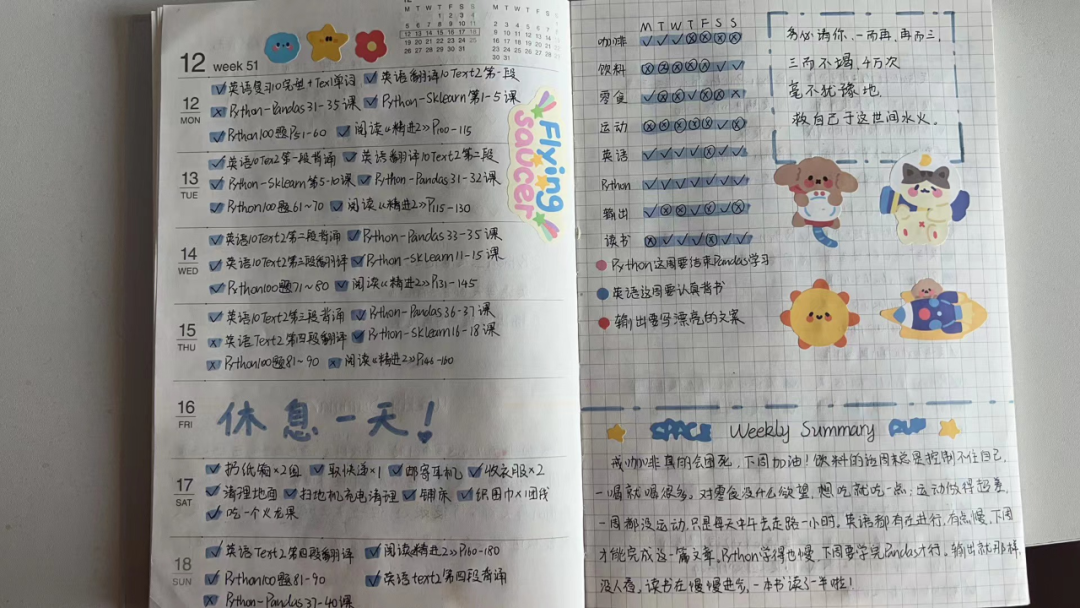 12 week 51
12
MON
英语复习10完型+Text单词 英语翻译10Text2第一段
Python-Pandas31-35课 Python-Sklearn第1-5课
Python100题P51-60 阅读《精进2》P100-115
13
TUE
英语10Text2第一段背诵 英语翻译10Text2第二段
Python-Sklearn第5-10课 Python-Pandas31-32课
Python100题61~70 阅读《精进2》P115-130
14
WED
英语10Text2第二段背诵 Python-Pandas33-35课
英语10Text2第三段翻译 Python-Sklearn11-15课
Python100题71~80 阅读《精进2》P131-145
15
THU
英语10Text2第三段背诵 Python-Pandas36-37课
英语Text2第四段翻译 Python-Sklearn16-18课
Python100题81~90 阅读《精进2》P146-160
16
FRI
休息一天!
17
SAT
扔纸箱×2组 取快递×1 邮寄耳机 收衣服×2
清理地面 扫地机充电清理 铺床 织围巾×1团线
吃一个火龙果
18
SUN
英语Text2第四段翻译 阅读《精进2》P160-180
Python100题81-90 英语text2第四段背诵
Python-Pandas37-40课
Flying
saucer
M T W T F S S
咖啡
饮料
零食
运动
英语
Python
输出
读书
Python这周要结束Pandas学习
英语这周要认真背书
输出要写漂亮的文案
务必请你,一而再,再而三,
三而不竭,4万次
毫不犹豫地,
救自己于这世间水火。
SPACE Weekly Summary
戒咖啡真的会困死,下周加油!饮料的话周末总是控制不住自己,
一喝就喝很多。对零食没什么欲望,想吃就吃一点;运动做得超差,
一周都没运动,只是每天中午去走路一小时。英语都有在进行,有点慢,下周
才能完成这一篇文章。Python学得也慢,下周要学完Pandas才行。输出就那样,
没人看,读书在慢慢进步,一本书读了一半啦!